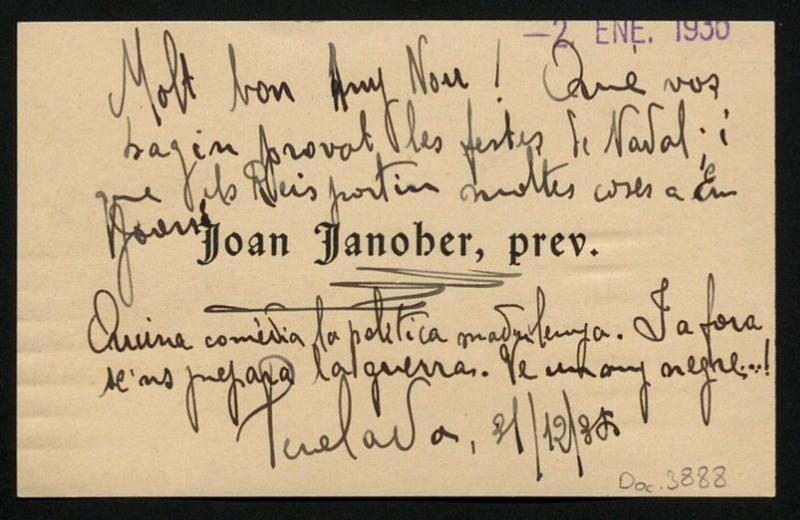 -2 ENE. 1936
Molt bon Any Nou! Què vos
hagin provat les festes de Nadal; i
que els Reis portin moltes coses a En
Joan Janober, prev.
Quina comèdia la política madrilenya. I a fora
se'ns prepara la guerra. Ve un any negre...!
Perelada, 31/12/35
Doc. 3888